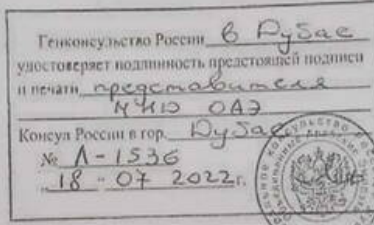 Генконсульство России в Дубае
удостоверяет подлинность предстоящей подписи
и печати представителя
МИД ОАЭ
Консул России в гор. Дубае
№ Л-1536
„18" 07 2022г.